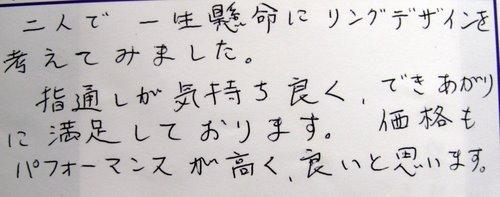 二人で 一生懸命に リングデザインを
考えてみました。
指通しが気持ち良く、できあがり
に満足しております。 価格も
パフォーマンスが高く、良いと思います。